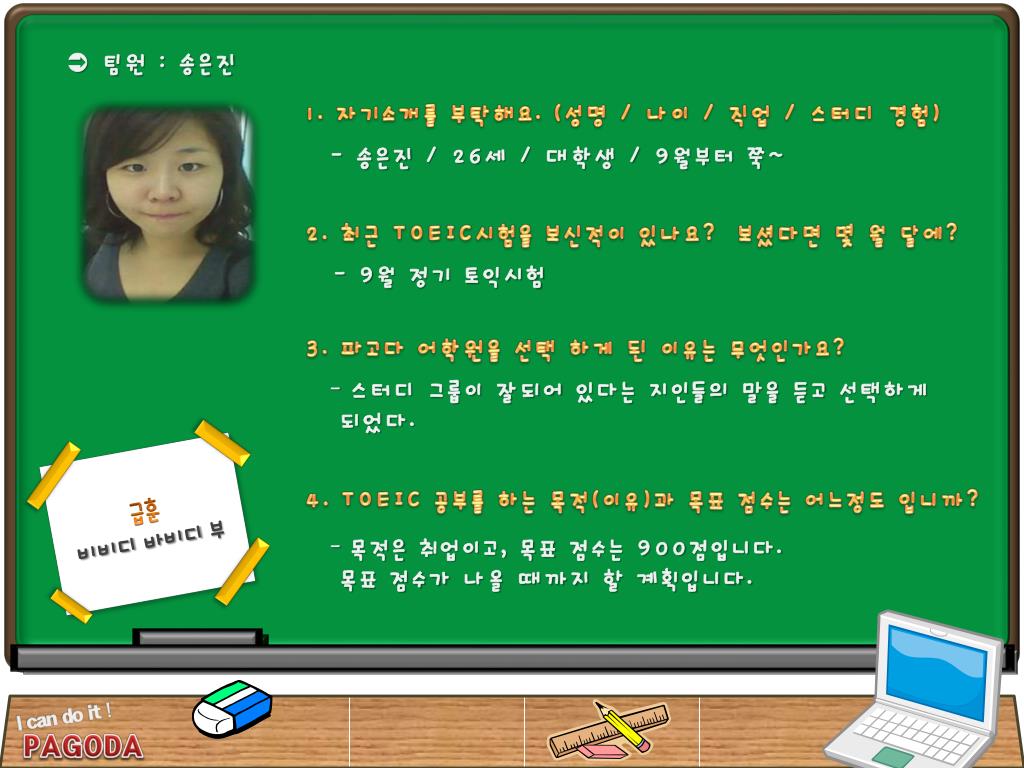 팀원 : 송은진
1. 자기소개를 부탁해요. (성명 / 나이 / 직업 / 스터디 경험)
- 송은진 / 26세 / 대학생 / 9월부터 쭉~
2. 최근 TOEIC시험을 보신적이 있나요? 보셨다면 몇 월 달에?
- 9월 정기 토익시험
3. 파고다 어학원을 선택 하게 된 이유는 무엇인가요?
- 스터디 그룹이 잘되어 있다는 지인들의 말을 듣고 선택하게
되었다.
4. TOEIC 공부를 하는 목적(이유)과 목표 점수는 어느정도 입니까?
- 목적은 취업이고, 목표 점수는 900점입니다.
목표 점수가 나올 때까지 할 계획입니다.
급훈
비비디 바비디 부
I can do it !
PAGODA